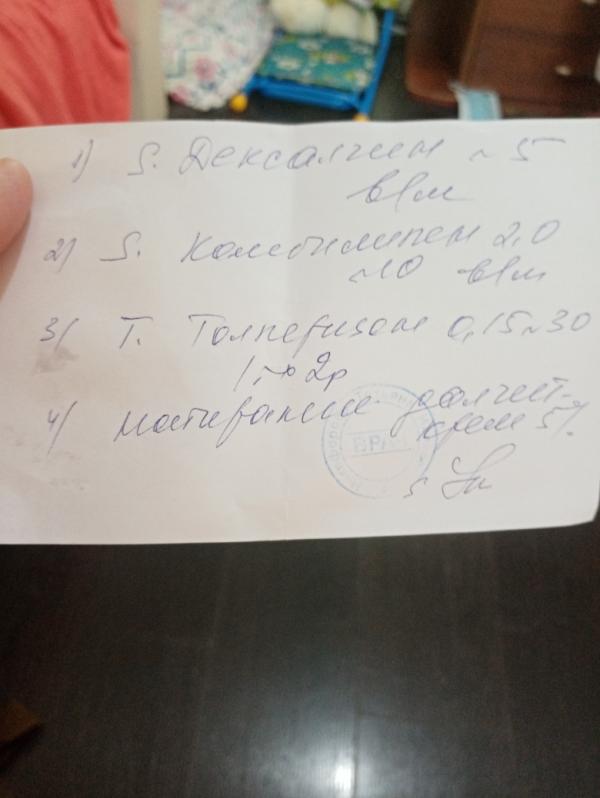 1) S. Дексалгин N 5
в/м
2) S. Комбилипен 2,0
N10 в/м
3) Т. Толперизон 0,15 N 30
1т х 2р
4) натирание долгит-
крем 5%
ВРА